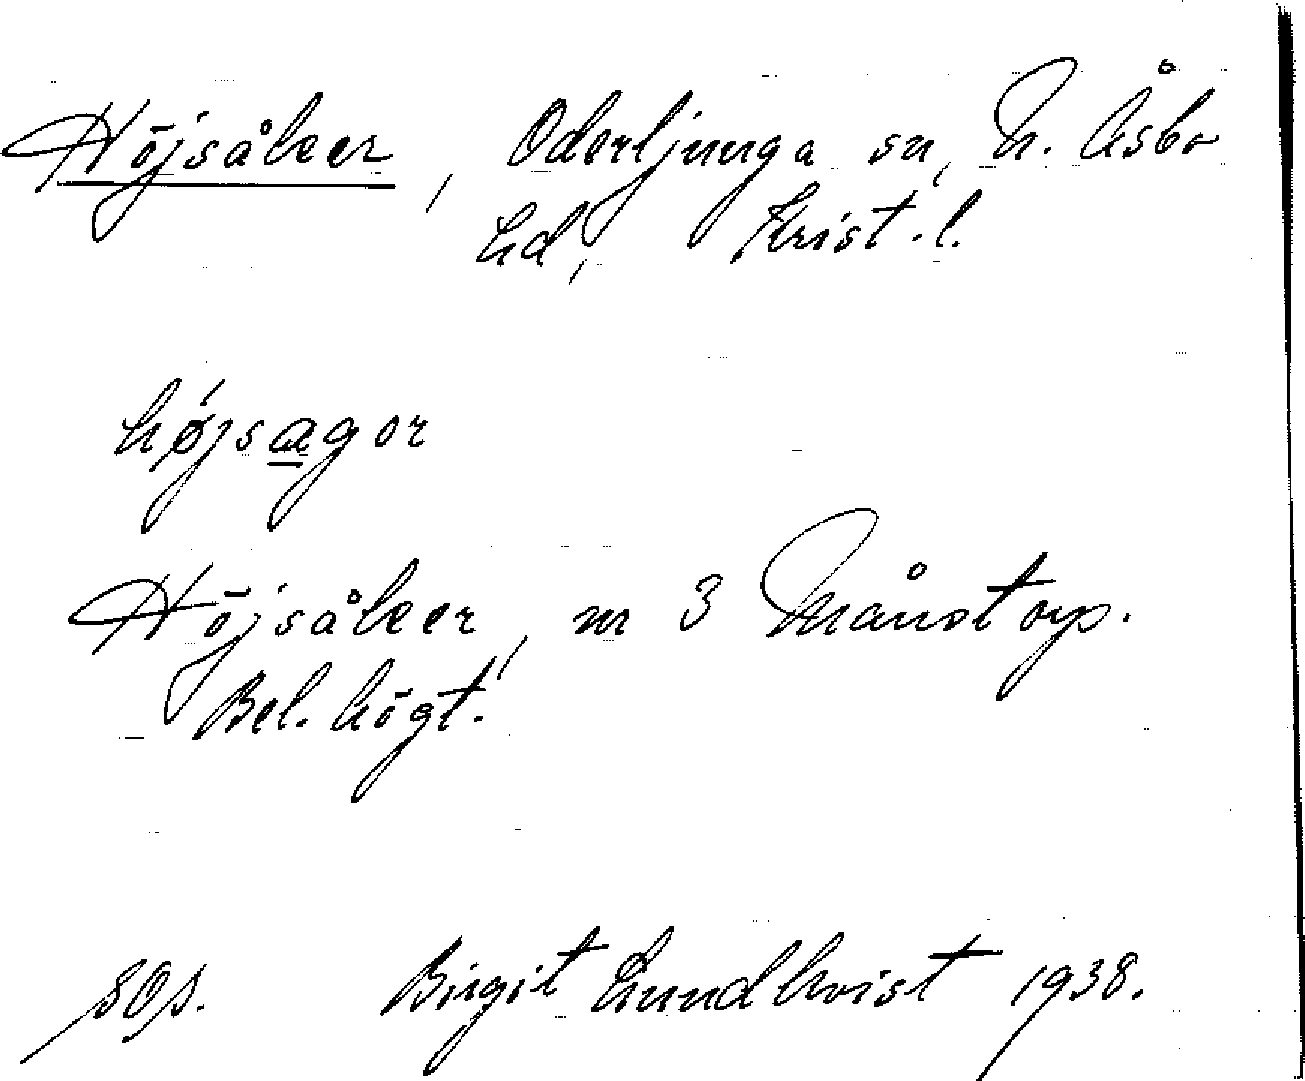 Höjsåker, Oderljunga sn, N. Åsbo
hd, Krist. l.
hǿjsagor
Höjsåker, nr 3 Månstorp.
Bel. högt.
sOp. Birgit Lundkvist 1938.